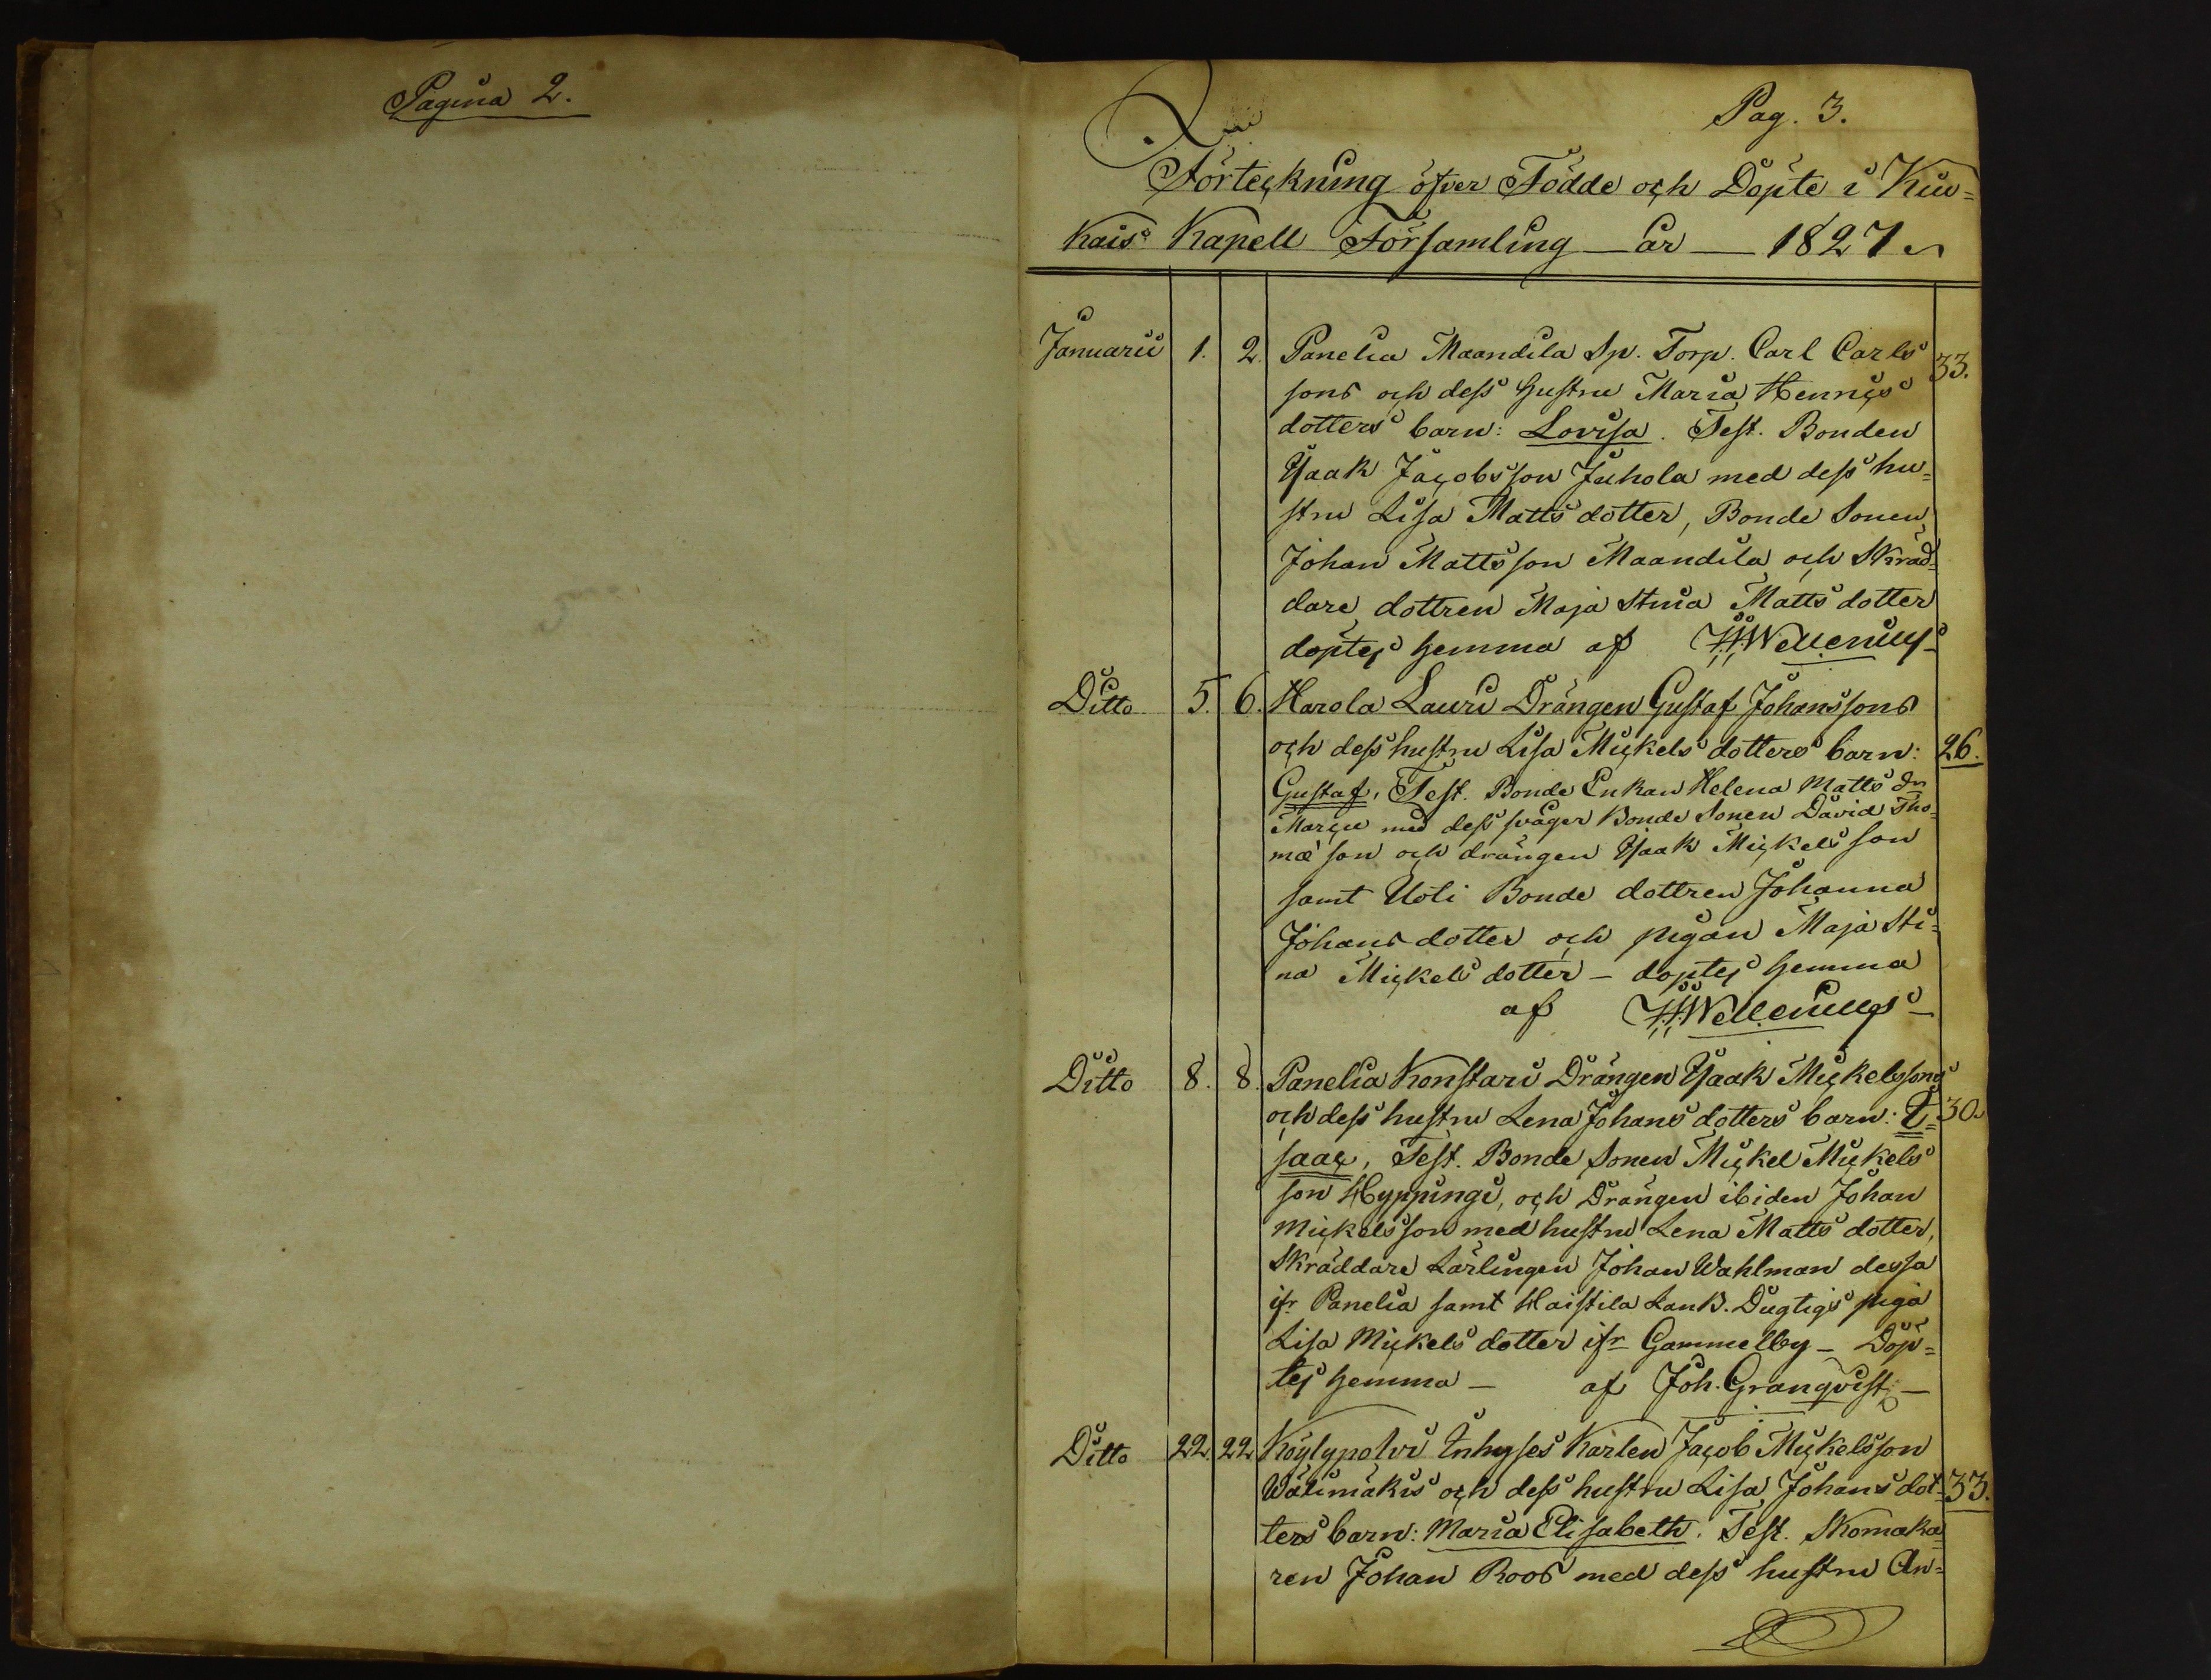 Pagina 2.
Pag. 3.
Förteckning öfver Födde och Döpte i Kiu=
kais Kapell Församling år 1827
Januarii 1. 2. Panelia Maandila Sp. Torp. Carl Carls
sons och dess Hustru Maria Henrics
dotters barn: Lovisa. Test. Bonden 33.
Isaak Jacobsson Juhola med dess hu=
stru Lisa Mattsdotter, Bonde Sonen
Johan Mattsson Maandila och Skräd=
dare dottren Maja Stina Matts dotter
döptes hemma af
Ditto 5. 6. Harola Lauri Drängen Gustaf Johanssons
och dess hustru Lisa Mickels dotters barn: 26.
Gustaf, Test. Bonde Enkan Helena Matts dr
Marcu med dess svåger Bonde Sonen David Tho=
mæ son och drängen Isaak Mickels son
samt Uoti Bonde dottren Johanna
Johans dotter och pigan Maja Sti=
na Mickels dotter – döptes hemma
af
Ditto 8. 8. Panelia Konstari Drängen Isaak Mickelssons
och dess hustru Lena Johans dotters barn: I= 30.
saac, Test. Bonde Sonen Mickel Mickels
son Hyppingi, och Drängen ibiden Johan
Mickelsson med hustru Lena Matts dotter,
Skräddare Lärlingen Johan Wahlman dessa
ifr Panelia samt Haistila LanB. Dugtigs piga
Lisa Mickels dotter ifr Gammelby – Döp=
tes hemma – af Joh. Granqvist –
Ditto 22. 22 Köylypolvi Inhyses Karlen Jacob Mickelsson
Wälimäkis och dess hustru Lisa Johans dot= 33.
ters barn: Maria Elisabeth. Test. Skomaka
ren Johan Roos med dess hustru An=